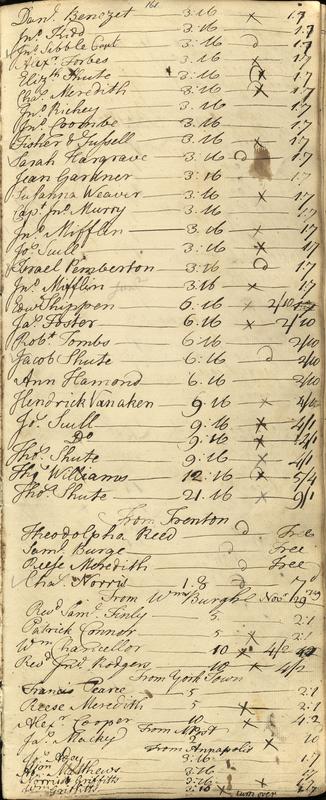 161
Danl. Benezet 3:16 x 1:7
Jno. Kidd 3:16 1:7
Jno. Sibble Capt 3:16 1:7
Alexr. Forbes 3:16 x 1:7
Elizth. Shute 3:16 x 1:7
Chas. Meredith 3:16 x 1:7
Jno. Richey 3:16 1:7
Jno. Coombe 3:16 1:7
Fisher & Fussell 3:16 x 1:7
Sarah Hargrave 3:16 1:7
Jean Gardner 3:16 1:7
Susanna Weaver 3:16 x 1:7
Cap. Jno. Murry 3:16 1:7
Jno. Mifflin 3:16 x 1:7
Jos. Scull 3:16 x 1:7
Israel Pemberton 3:16 1:7
Jno. Mifflin 3:16 x 1:7
Edwd Shippen 6:16 x 2/10
Jas. Foster 6:16 x 2/10
Robt. Tombs 6:16 2/10
Jacob Shute 6:16 2/10
Ann Hamond 6:16 2/10
Hendrick Vanaken 9:16 x
Jos. Scull 9:16 x 4/1
Do 9:16 x 4/1
Thos. Shute 9:16 x 4/1
Thos. Williams 12:16 x 5/4
Thos. Shute 21:16 x 9/1
From Trenton
Theodolpha Reed Free
Saml. Burge Free
Reese Meredith Free
Chas. Norris 1:8 7
From Wms Burgh Novr. 29
Revd. Saml. Finly 5 2:1
Patrick Connor 5 x 2:1
Wm Chancellor 10 x 4/2
Revd. Jno. Rodgers 10 x 4/2
From York Town
Francis Pearce 5 2:1
Reese Meredith 5 x 2:1
Alexr. Cooper 10 x 4:2
Jas. Mackey x 10
From Annapolis
3:16 x 1:7
Matthews 3:16 1:7
Norris Griffitts 3:16
Wm Griffitts 3:16 x
turn over